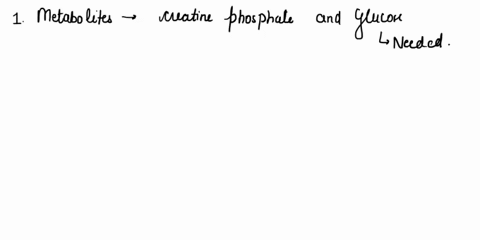 1. Metabolites → creatine phosphate and glucose
↳ Needed.